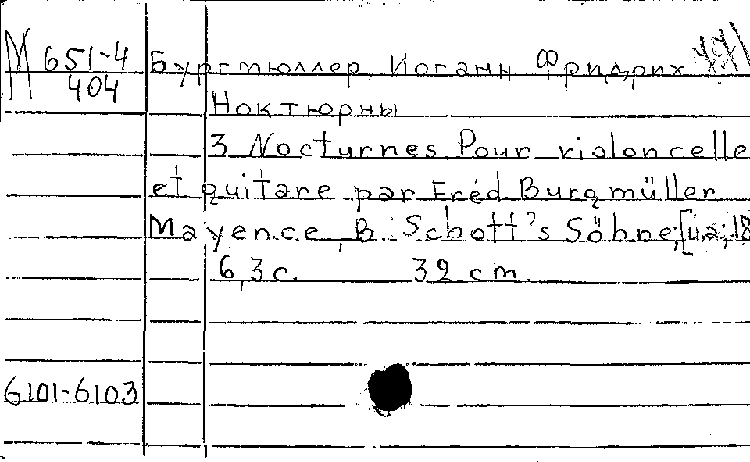 М 651-4 Бургмюллер Иоганн Фридрих
404
Ноктюрны
3 Nocturnes Pour violoncelle
et guitare par Fréd Burgmüller
Mayence, B. Schott's Söhne,
6,3 с. 32 cm.
6101-6103